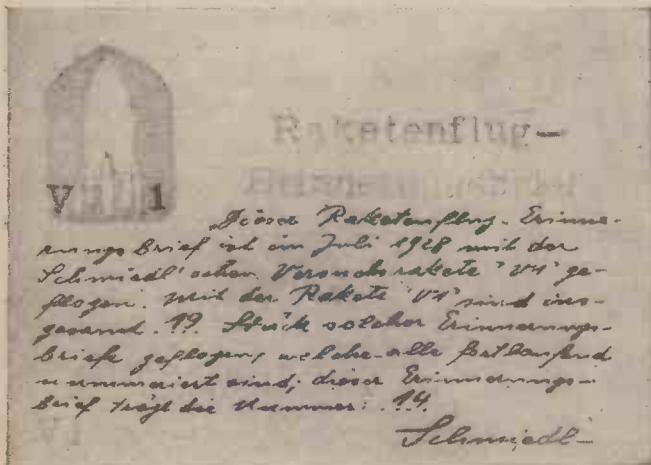 Raketenflug-
V 1
„Dieser Raketenflug-Erinne-
rungsbrief ist im Juli 1928 mit der
Schmiedl'schen Versuchsrakete "V1" ge-
flogen. Mit der Rakete "V1" sind ins-
gesamt .19. Stück solcher Erinnerungs-
briefe geflogen, welche alle fortlaufend
nummeriert sind; dieser Erinnerungs-
brief trägt die Nummer: .14.
Schmiedl